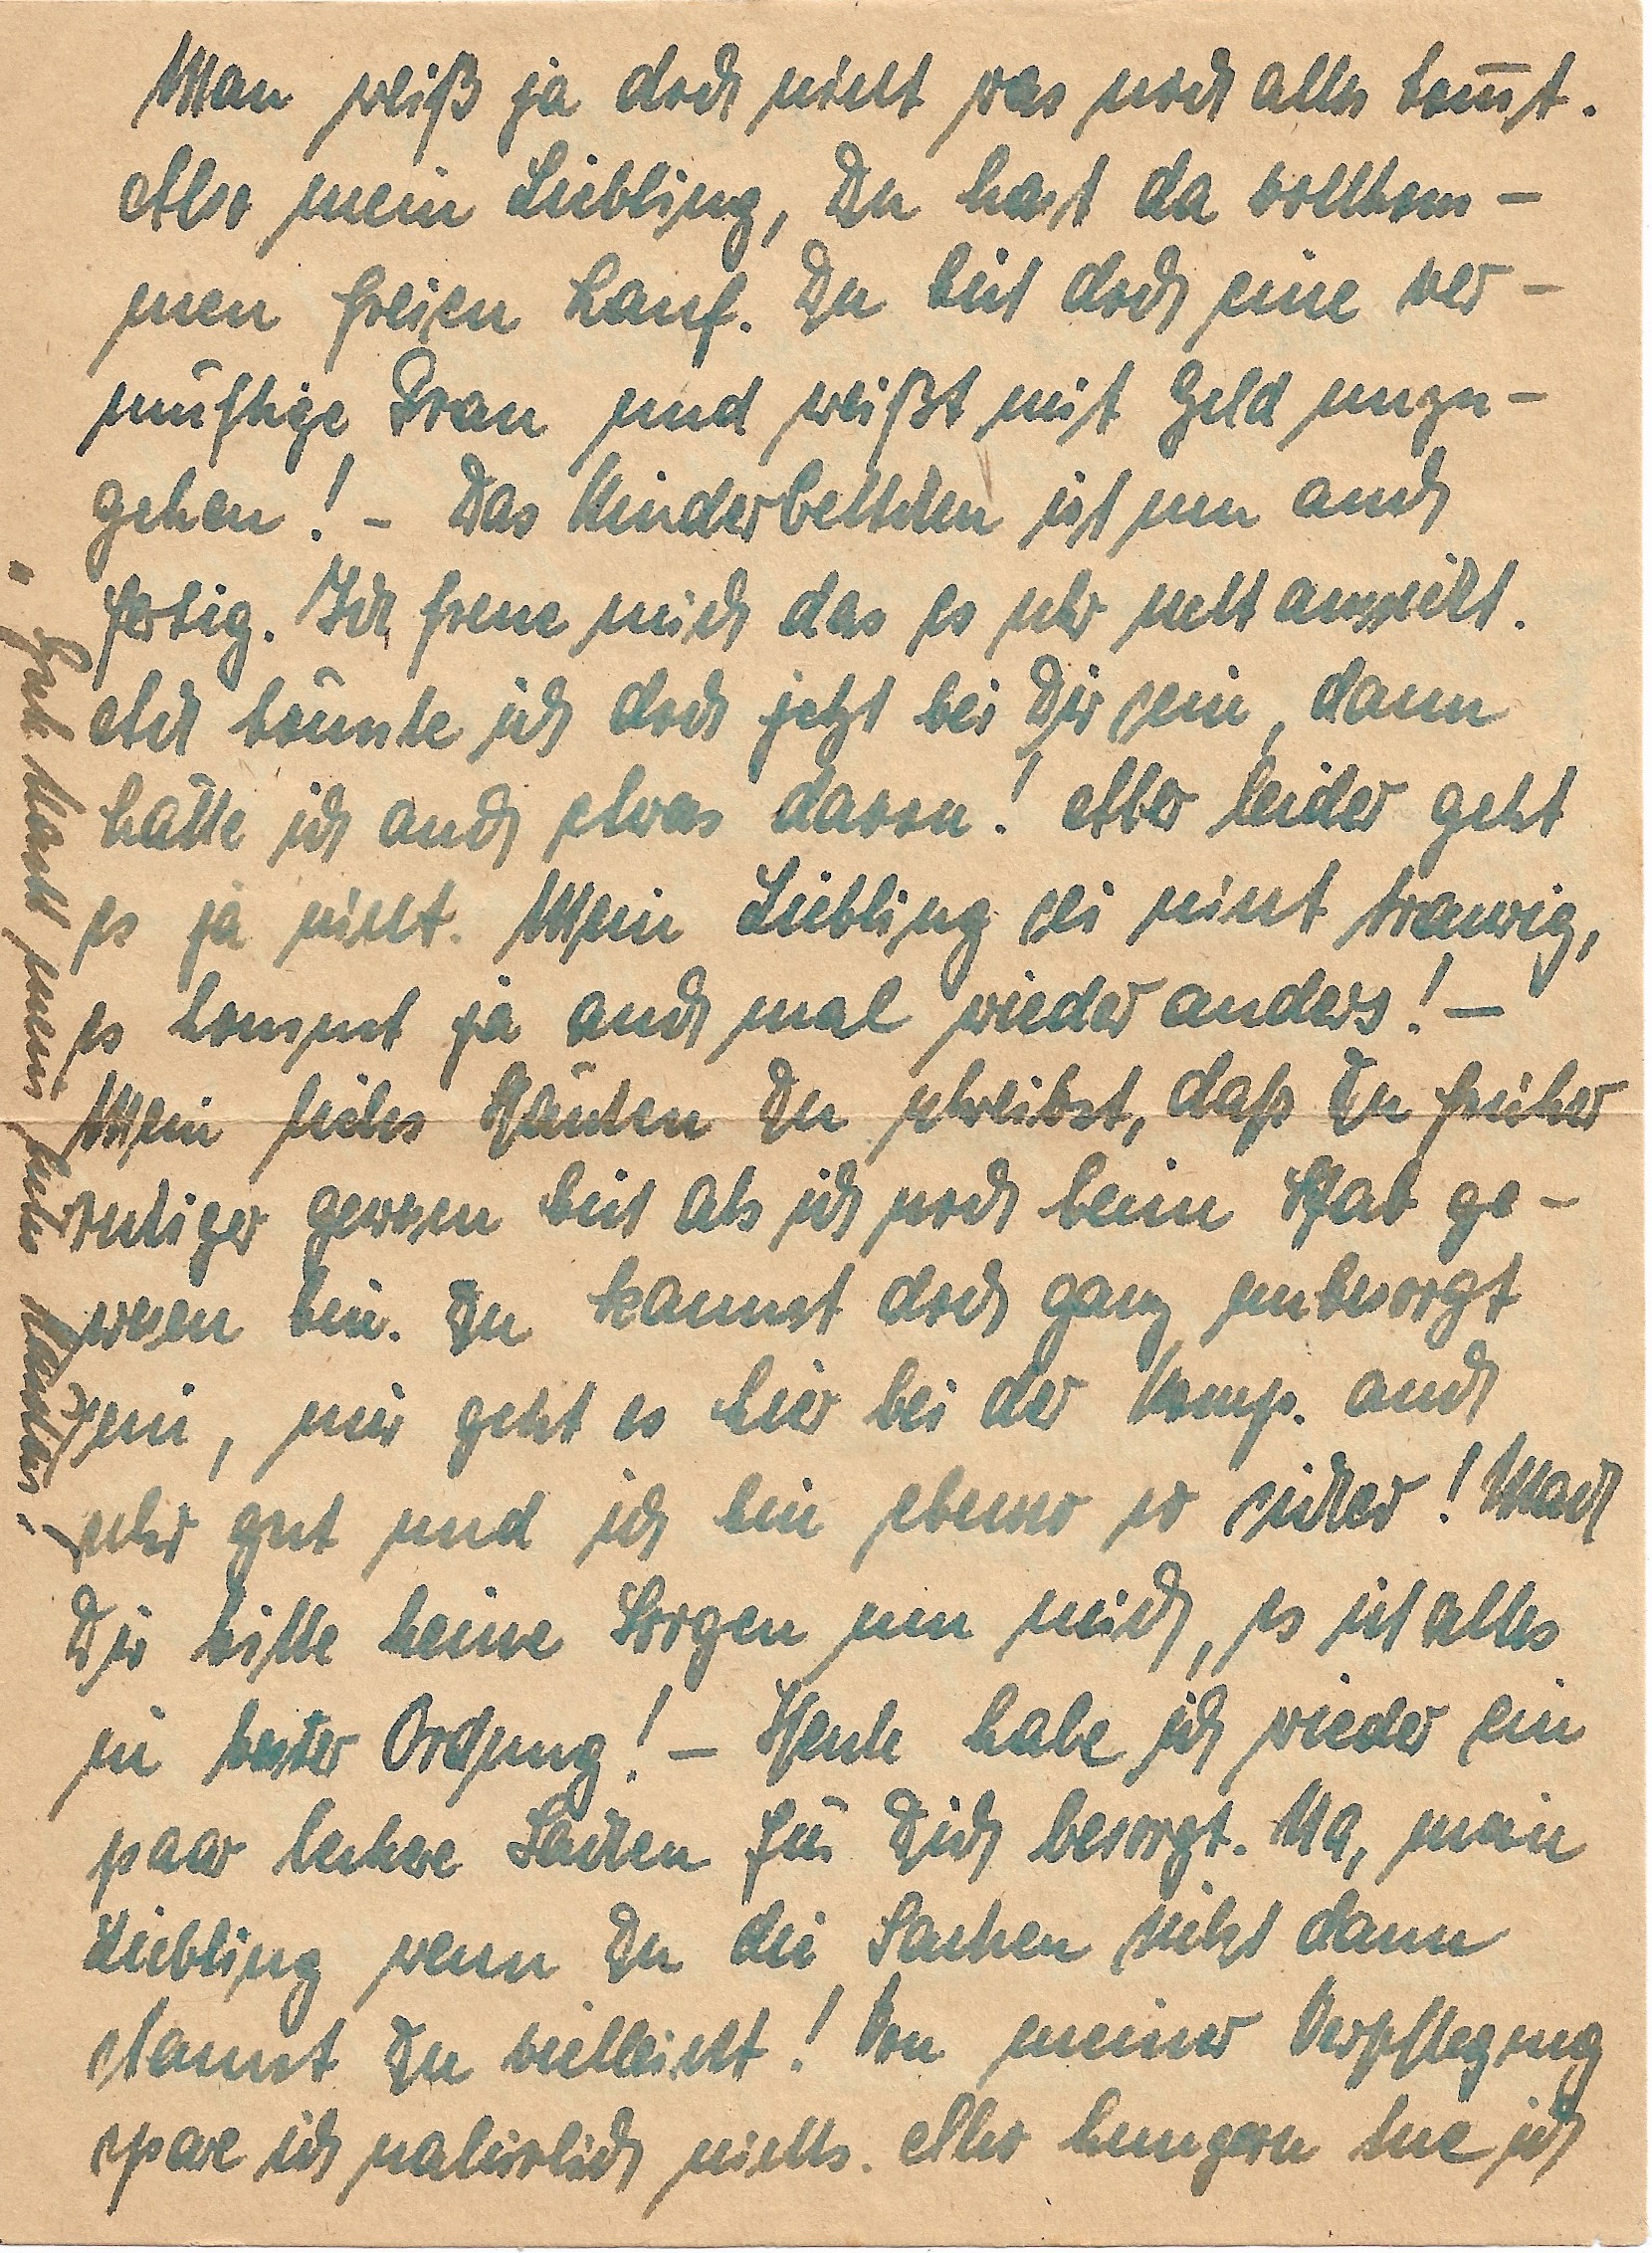 Man weiß ja doch nicht was noch alles kom̅t.
Also mein Liebling, Du hast da vollkom-
men freien Lauf. Du bist doch eine ver-
nünftige Frau und weißt mit Geld umzu-
gehen! - Das Kinderbettchen ist nun auch
fertig. Ich freue mich das es sehr nett aussieht.
Ach könnte ich doch jetzt bei Dir sein, dann
hätte ich auch etwas davon! Aber leider geht
es ja nicht. Mein Liebling sei nicht traurig,
es kommt ja auch mal wieder anders! -
Mein liebes Du schreibst, daß Du früher
ruhiger gewesen bist als ich noch beim Stab ge-
wesen bin. Du kannst doch ganz unbesorgt
sein, mir geht es hier bei der Komp. auch
sehr gut und ich bin ebenso so sicher! Mach
Dir bitte keine Sorgen um mich, es ist alles
in bester Ordnung! - Heute habe ich wieder ein
paar leckere Sachen für Dich besorgt. Na, mein
Liebling wenn Du die Sachen siehst dann
staunst Du vielleicht! Von meiner Verpflegung
spare ich natürlich nichts. Aber hungern tue ich
Gute Nacht mein liebes